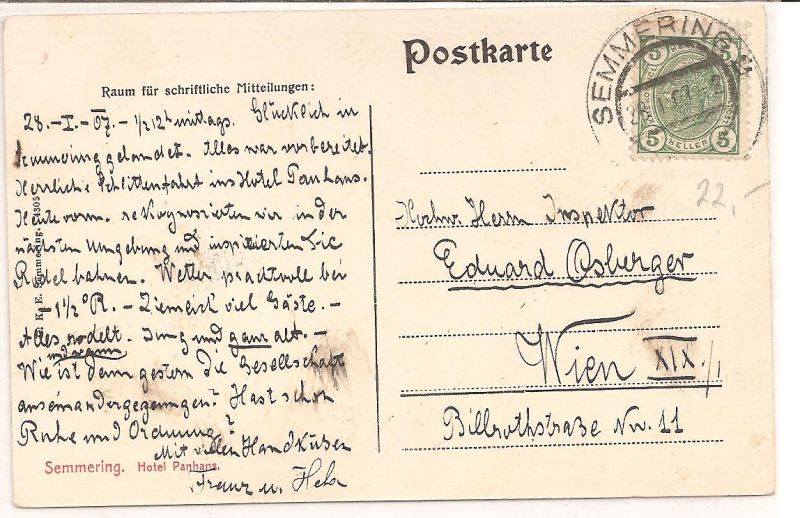 Postkarte
Raum für schriftliche Mitteilungen:
28.-I.-07.- ½12h mittags. Glücklich in
Semmering gelandet. Alles war vorbereitet.
Herrliche Schlittenfahrt ins Hotel Panhans.
Heute vorm. rekognoszierten wir in der
nächsten Umgebung und inspizierten die
Rodelbahnen. Wetter prachtvoll bei
-1½°R. - Ziemlich viel Gäste. -
Alles rodelt. Jung und ganz alt. -
Wie ist denn gestern die Gesellschaft
auseinandergegangen? Hast schon
Ruhe und Ordnung?
Mit vielen Handküssen
Franz u. Hela
Semmering. Hotel Panhans.
K. E. Semmering. 4305
SEMMERING
5 5
5 HELLER 5
22,-
Hochw. Herrn Inspektor
Eduard Osberger
Wien XIX/1
Billrothstraße Nr. 11